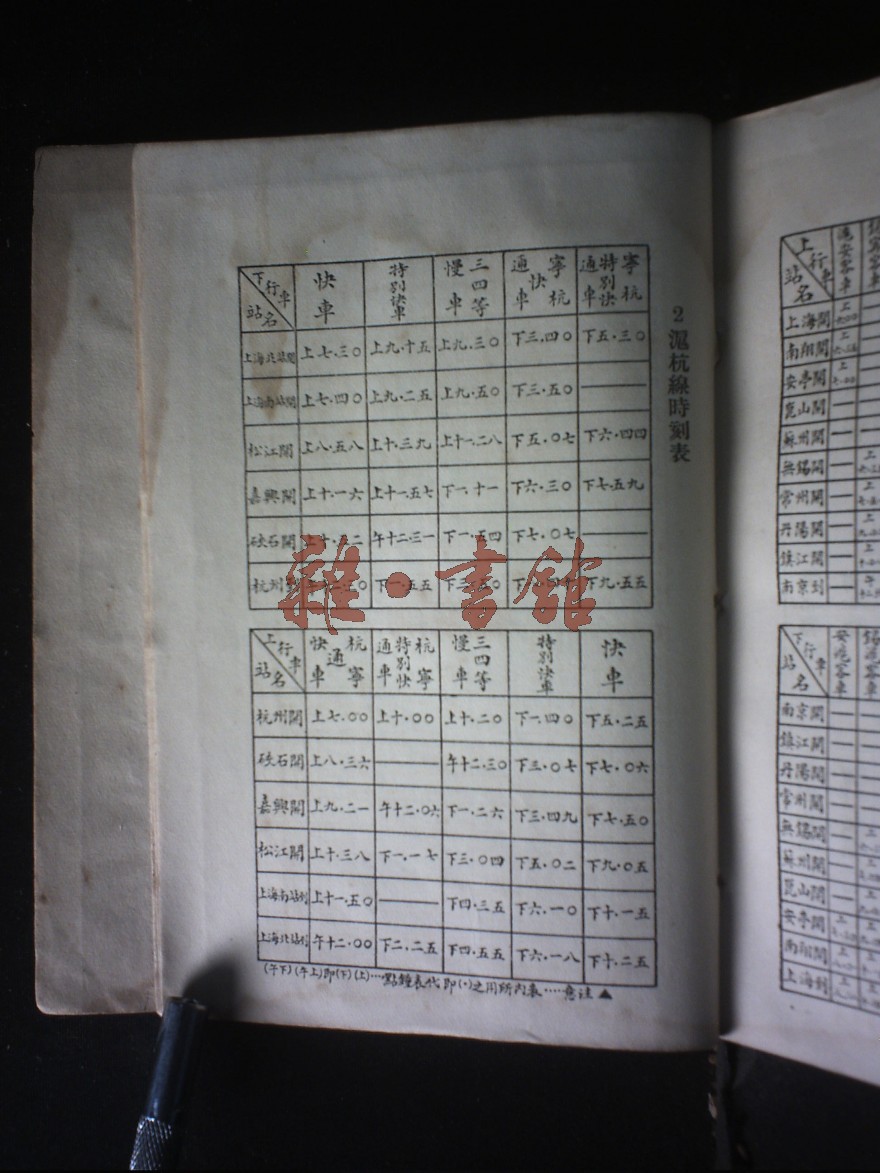 2 滬杭線時刻表
下行車 站名 快車 特別快車 三四等慢車 寧杭快通車 寧杭特別快通車
上海北站開 上七.三〇 上九.十五 上九.三〇 下三.四〇 下五.三〇
上海南站開 上七.四〇 上九.二五 上九.五〇 下三.五〇 ——
松江開 上八.五八 上十.三九 上十一.二八 下五.〇七 下六.四四
嘉興開 上十.一六 上十一.五七 下一.十一 下六.三〇 下七.五九
硤石開 午十二.三一 下一.五四 下七.〇七 ——
杭州到 下一.五五 下九.五五
雜·書館
上行車 站名 杭寧通快車 杭寧特別快通車 三四等慢車 特別快車 快車
杭州開 上七.〇〇 上十.〇〇 上十.二〇 下一.四〇 下五.二五
硤石開 上八.三六 —— 午十二.三〇 下三.〇七 下七.〇六
嘉興開 上九.二一 午十二.〇六 下一.二六 下三.四九 下七.五〇
松江開 上十.三八 下一.一七 下三.〇四 下五.〇二 下九.〇五
上海南站到 上十一.五〇 —— 下四.三五 下六.一〇 下十.一五
上海北站到 午十二.〇〇 下二.二五 下四.五五 下六.一八 下十.二五
▲注意……表內所用之(·)即代表鐘點…(上)(下)即(上午)(下午)
上行車 站名
上海開
南翔開
安亭開
崑山開
蘇州開
無錫開
常州開
丹陽開
鎮江開
南京到
下行車 站名
南京開
鎮江開
丹陽開
常州開
無錫開
蘇州開
崑山開
安亭開
南翔開
上海到